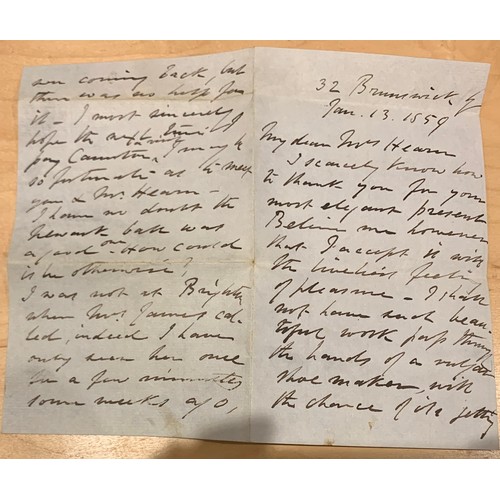 32 Brunswick Sq
Jan. 13. 1859
My dear Mrs Hearn
I scarcely know how
to thank you for your
most elegant present
Believe me however
that I accept it with
the liveliest feeling
of pleasure - I shall
not have such beau
tiful work pass through
the hands of a vulgar
shoe maker with
the chance of its getting
ever coming back, but
there was no help for
it - I most sincerely
hope the next time I
pay a visit I may be
so fortunate as to meet
you & Mr. Hearn -
I have no doubt the
Newark ball was
a good one - How could
it be otherwise?
I was not at Brighton
when Mrs James cal
led, indeed I have
only seen her once
for a few minutes
some weeks ago,